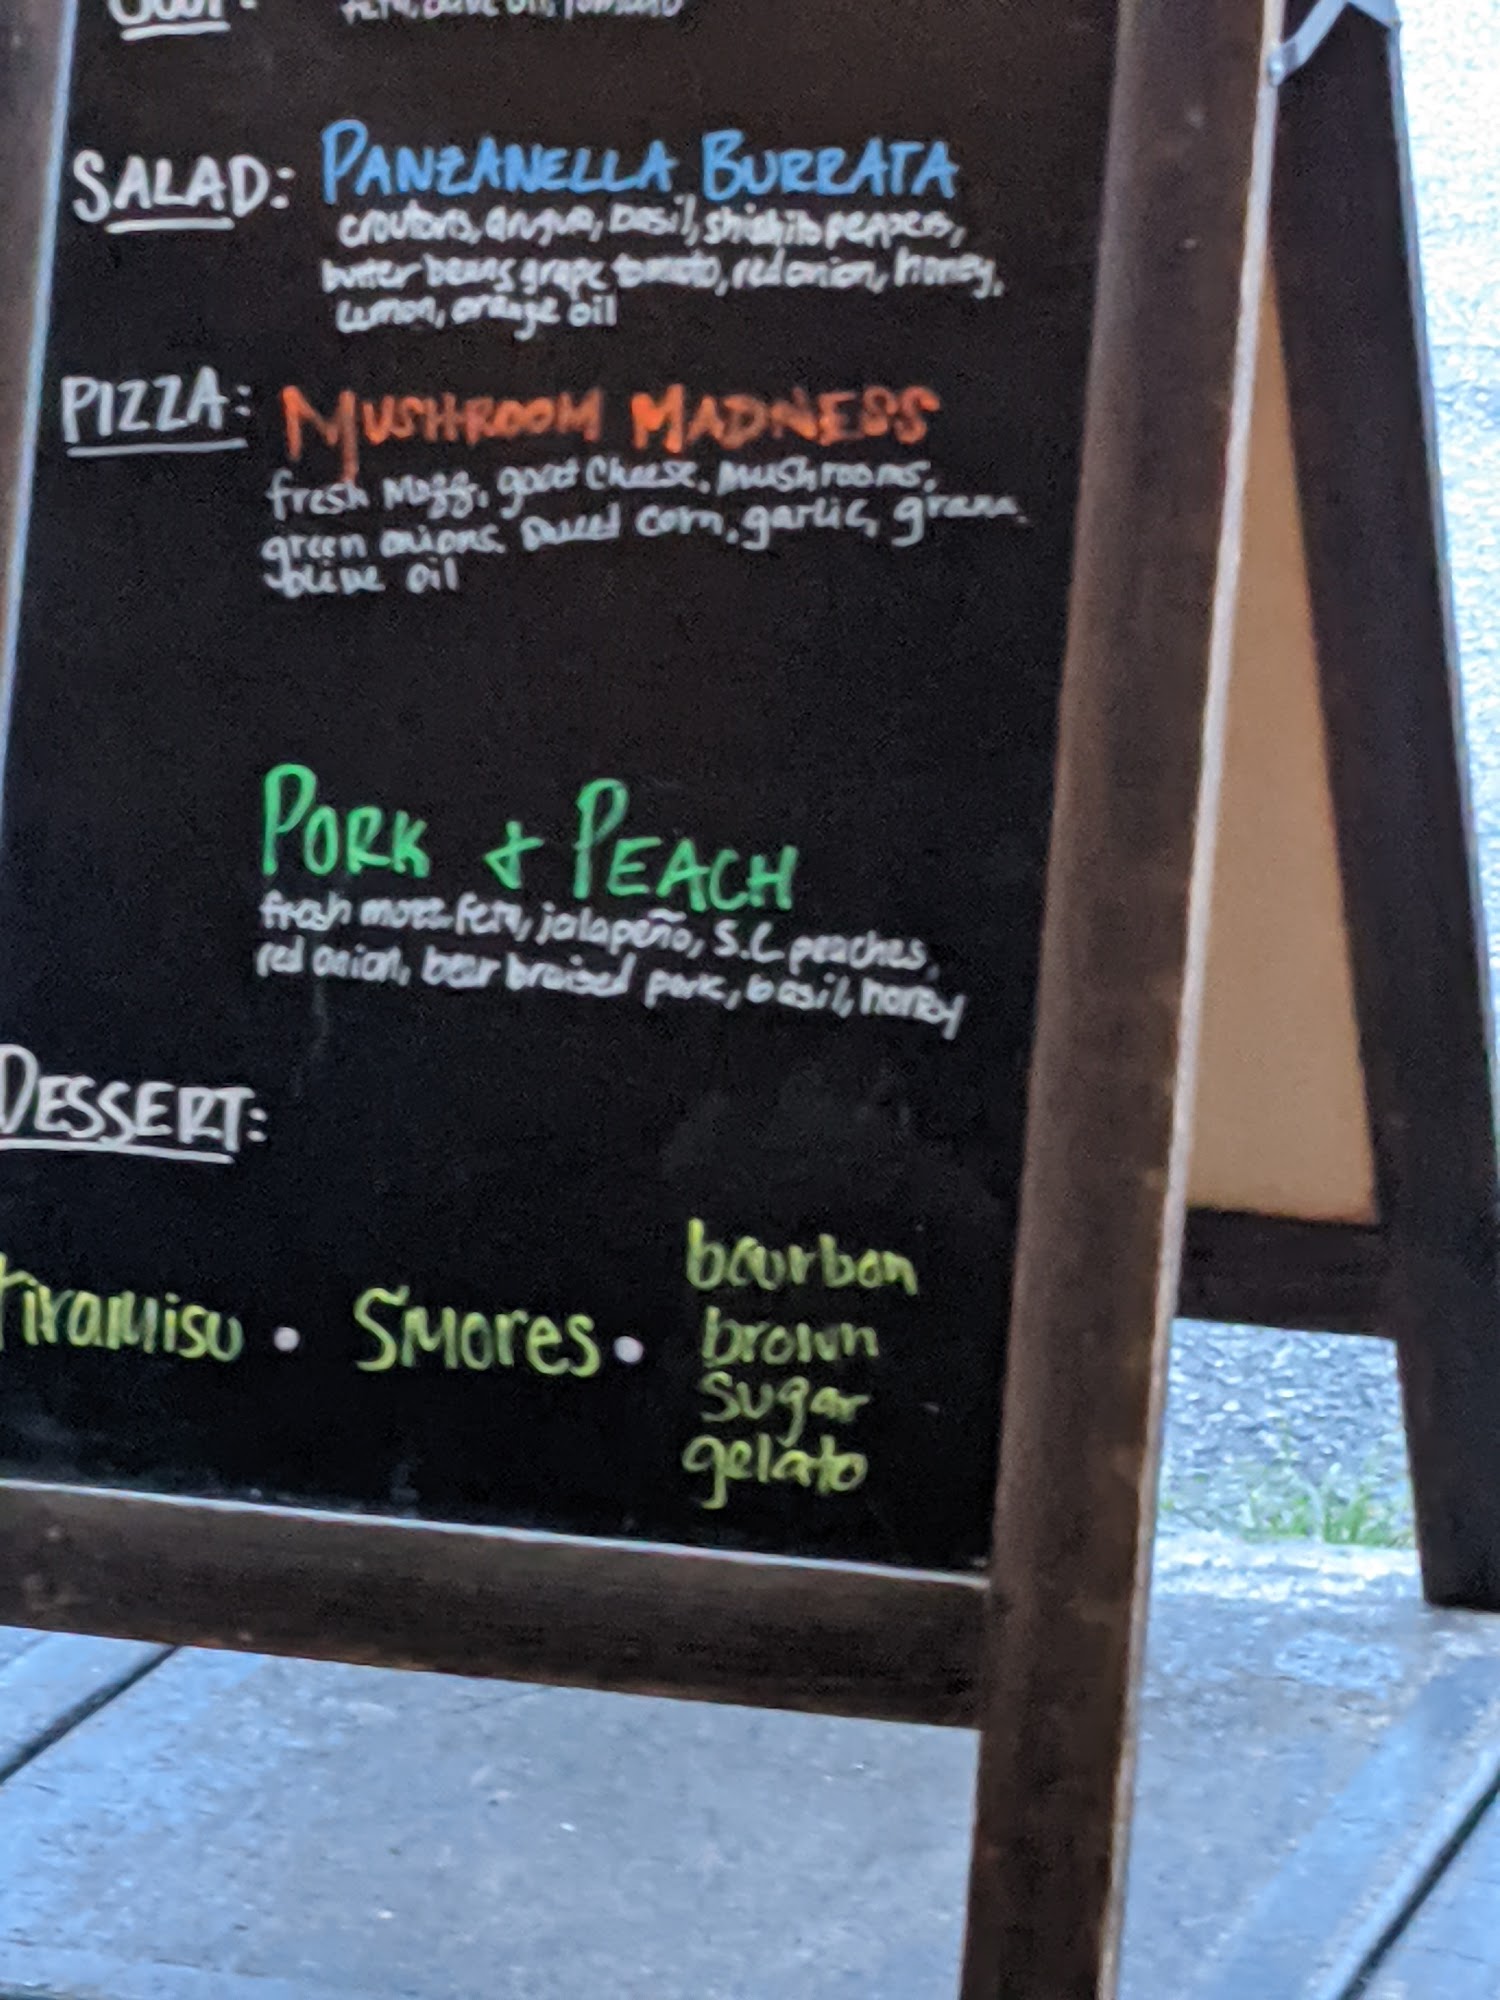 feta, olive oil, tomato
SALAD: PANZANELLA BURRATA
croutons, arugula, basil, shishito peppers,
butter beans, grape tomato, red onion, honey,
lemon, orange oil
PIZZA: MUSHROOM MADNESS
fresh mozz, goat cheese, mushrooms,
green onions, sweet corn, garlic, grana
olive oil
PORK + PEACH
fresh mozz, feta, jalapeño, S.C. peaches,
red onion, beer braised pork, basil, honey
DESSERT:
tiramisu • S'mores • bourbon
brown
sugar
gelato